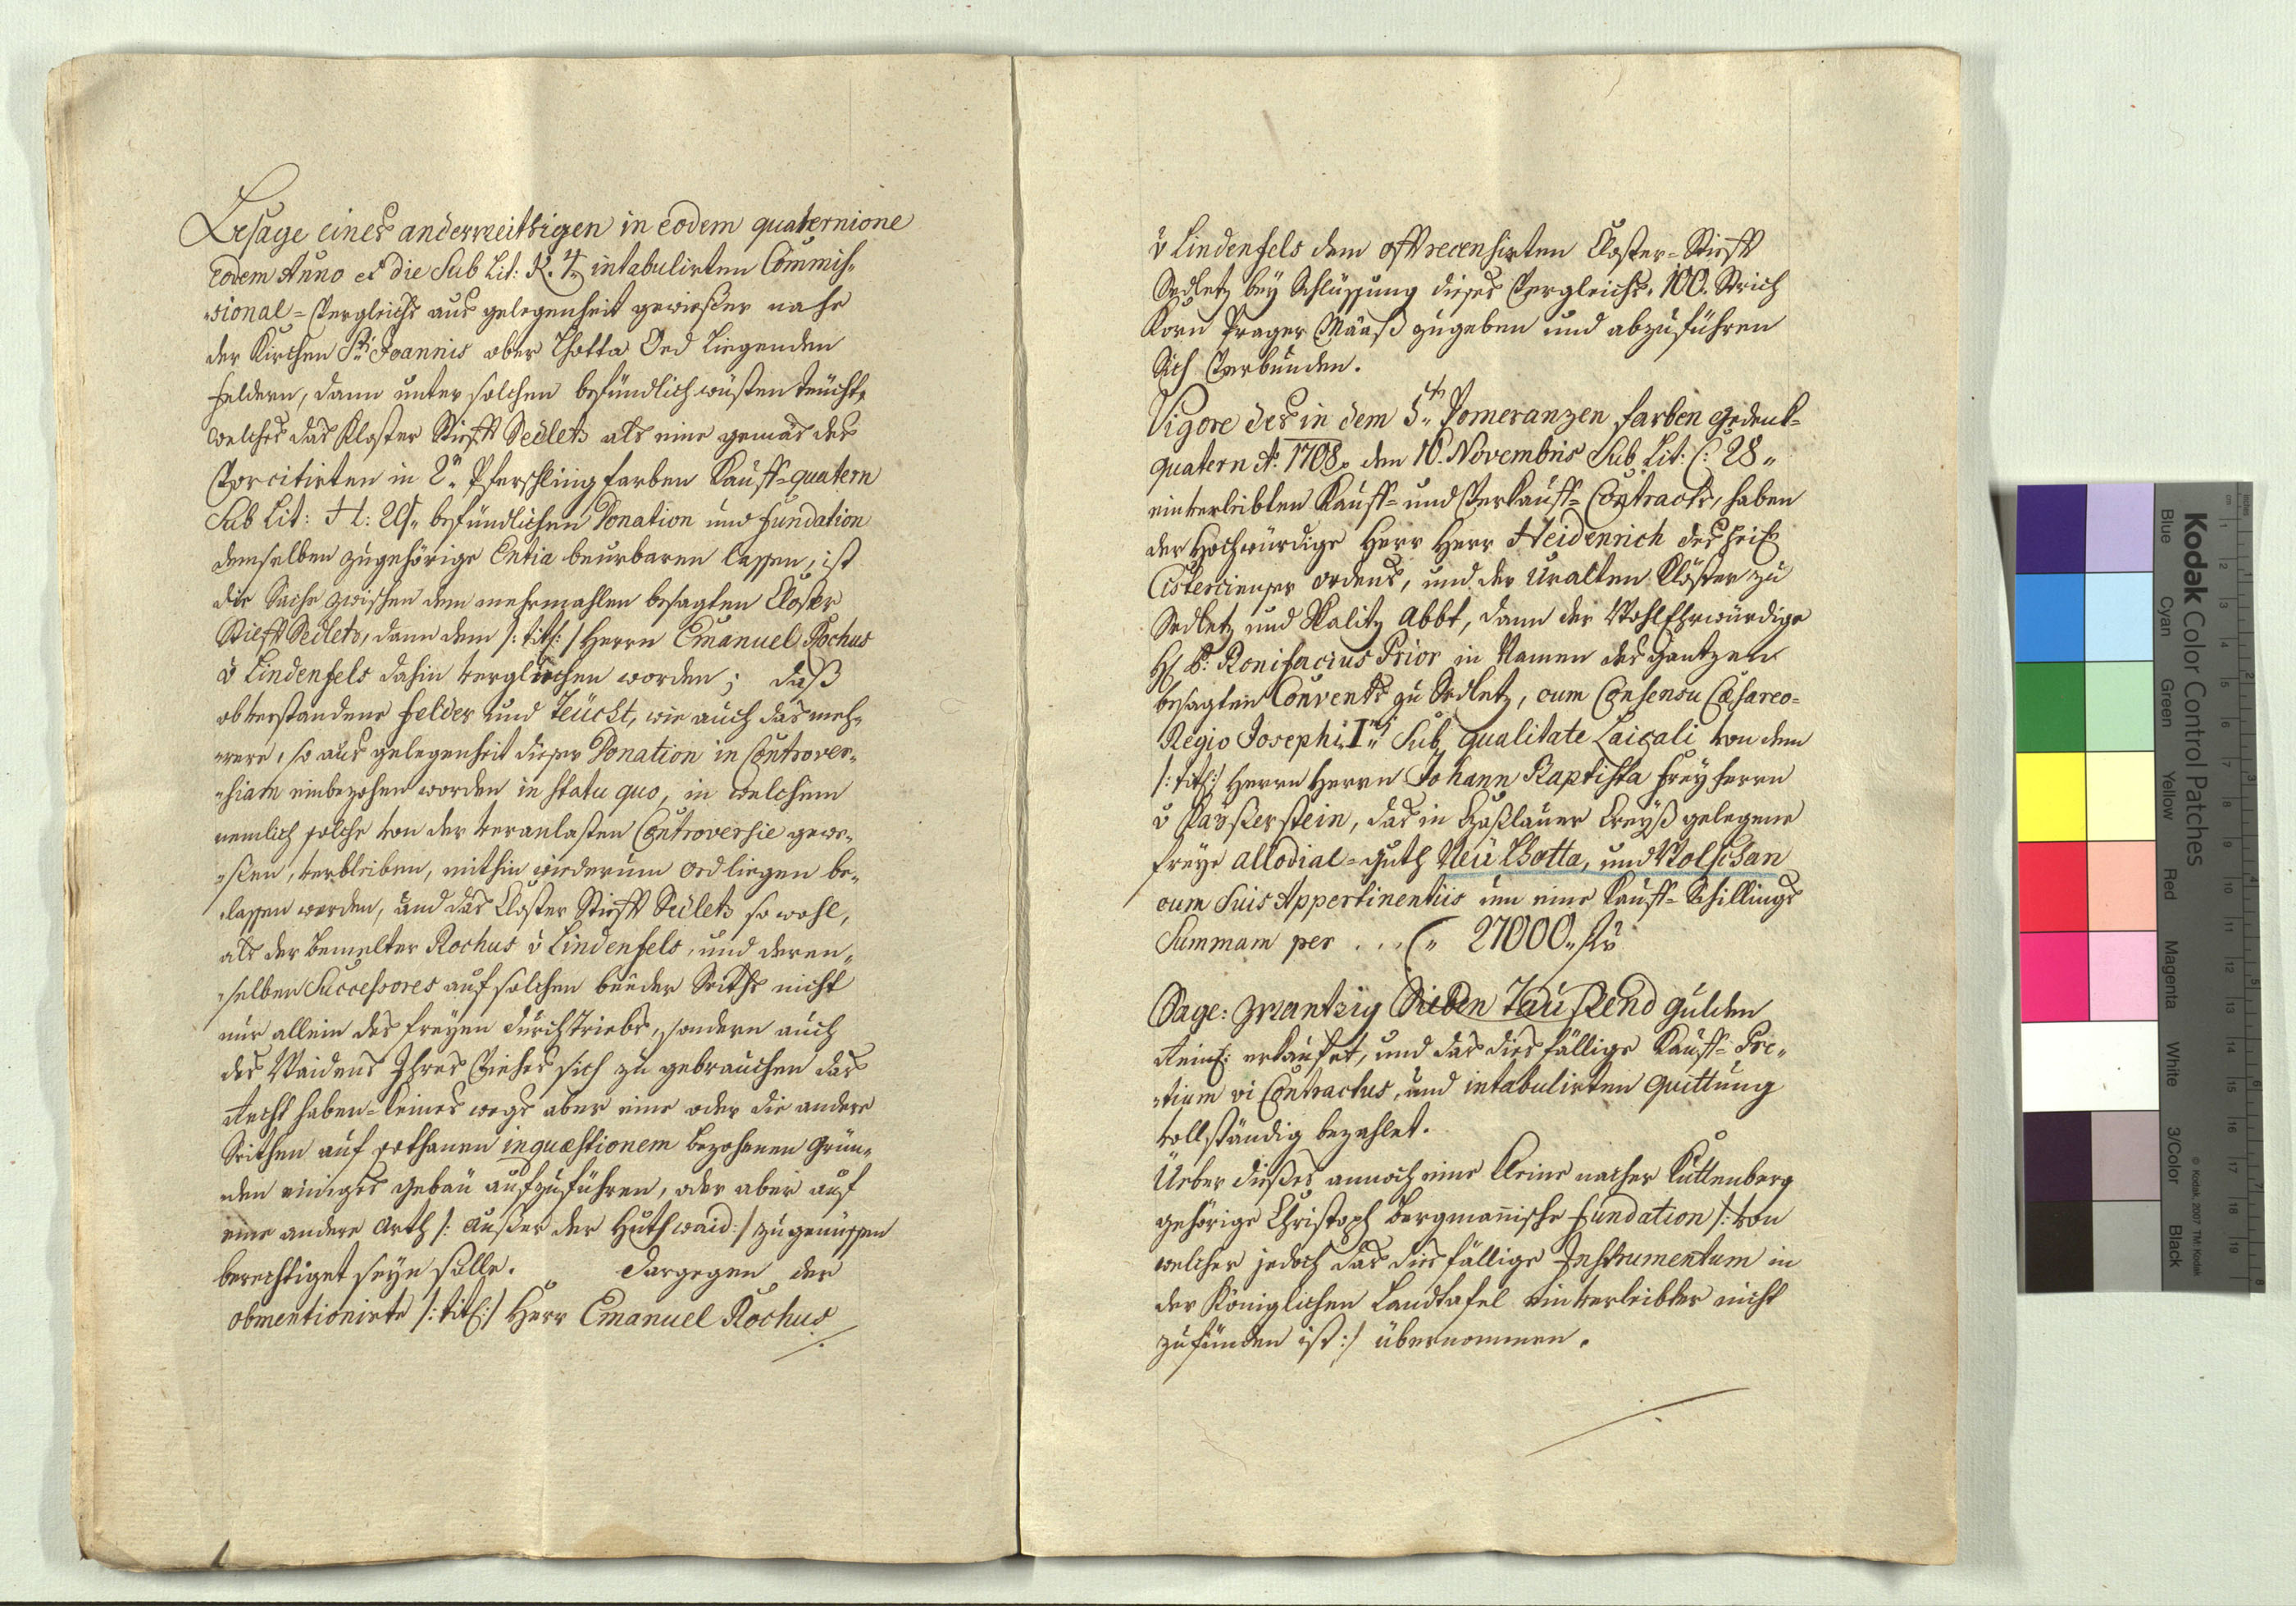 Besage eines anderweithigen in eodem quaternione
eodem Anno et die Sub Lit: K. 4. intabulirten Commis„
„sional=Vergleichs aus gelegenheit gewießer nahe
der Kirchen Sti Joannis ober Lhotta Oed Liegenden
feldern, dann unter solchen befündlich wüsten teücht,
welches das Kloster Stiefft Sedletz als eine gemäs des
Vorcitirten in 2n Pferschling farben Kauff=quatern
Sub Lit: H: 29. befündlichen Donation und fundation
demselben zugehörige Entia beurbaren lassen, ist
die Sache zwischen dem mehrmahlen besagten Closter
Stiefft Sedletz, dann dem /: titl: / Herrn Emanuel Rochus
v Lindenfels dahin verglichen worden; daß
obverstandene felder und Teücht, wie auch das meh„
„rere, so aus gelegenheit dieser Donation in Controver„
„siam einbezohen worden in statu quo, in welchem
nemlich solche von der veranlasten Controversie gewe„
„ßen, verbleiben, mithin wiederum oed liegen be„
„lassen werden, und das Closter Stiefft Sedletz so wohl,
als der bemelter Rochus v Lindenfels, und deren„
„selben Successores auf solchen beeder Seiths nicht
nur allein des freyen durchtriebs, sondern auch
des Waidens Ihres Viehes sich zu gebrauchen das
Recht haben=keines wegs aber eine oder die andere
Seithen auf sothanen in quæstionem bezohenen Grün„
„den einiges gebäu aufzuführen, oder aber auf
eine andere Arth /: außer der Huthwaid :/ zu genüssen
berechtiget seyn solle. Dargegen der
obmentionirte /: titl: / Herr Emanuel Rochus
v Lindenfels dem offt recensirten Closter=Stiefft
Sedletz bey Schlüssung dieses Vergleichs, 100. Strich
Korn Prager Määß zugeben und abzuführen
Sich Verbunden.
Vigore des in dem 5tn Pomeranzen farben gedenk=
quatern Ao 1708. den 10. Novembris Sub Lit: C: 28„
einverleibten Kauff= und Verkauff=Contracts, haben
der Hochwürdige Herr Herr Heidenrich des heil
Cistercienser ordens, und der Uralten Klöster zu
Sedletz und Skalitz Abbt, dann der WohlEhrwürdige
H P: Bonifacius Prior in Namen des gantzen
besagten Convents zu Sedletz, cum Consensu Cæsareo=
Regio Josephi Imi Sub qualitate Laicali von dem
/: titl:/ Herrn Herrn Johann Baptista freyherrn
v Väßerstein, das in Czaßlauer Creyß gelegene
freye allodial=Guth Neü Lhotta, und Wolschan
cum Suis Appertinentiis um eine Kauff=Schillings
Summam per ... (" 27000„ Fl
Sage: zwantzig Sieben Taußend gulden
Reinl: erkaufet, und das dies fällige Kauff=Pre„
„tium vi Contractus, und intabulirten Quittung
vollständig bezahlet.
Ueber dieses annoch eine kleine nacher Kuttenberg
gehörige Christoph Bergmanische fundation /: von
welcher jedoch das dies fällige Instrumentum in
der Königlichen Landtafel einverleibter nicht
zufünden ist :/ übernommen.
Kodak Color Control Patches
Blue Cyan Green Yellow Red Magenta White 3/Color Black
© Kodak, 2007 TM: Kodak